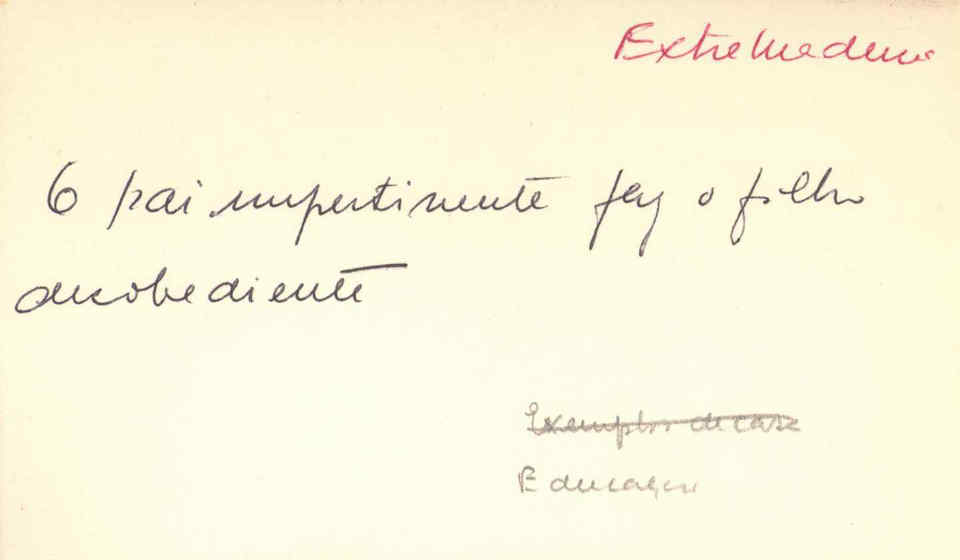 Extremadura
O pai impertinente faz o filho
desobediente
Exemplos de casa
Educação